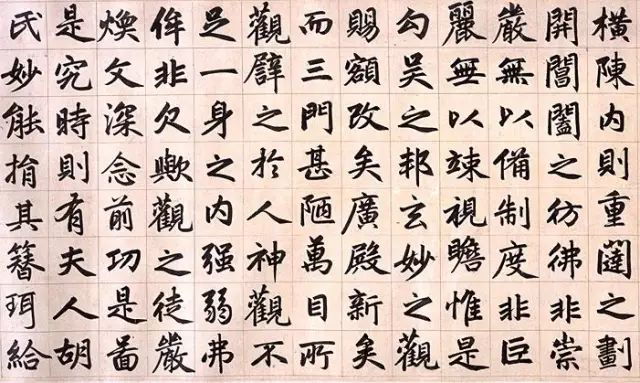 橫陳內則重闥之劃
開閶闔之彷彿非崇
嚴無以備制度非巨
麗無以竦視瞻惟是
勾吳之邦玄妙之觀
賜額改矣廣殿新矣
而三門甚陋萬目所
觀譬之於人神觀不
足一身之內强弱弗
侔非欠歟觀之徒嚴
煥文深念前功是啚
是究時則有夫人胡
氏妙能捐其簪珥給